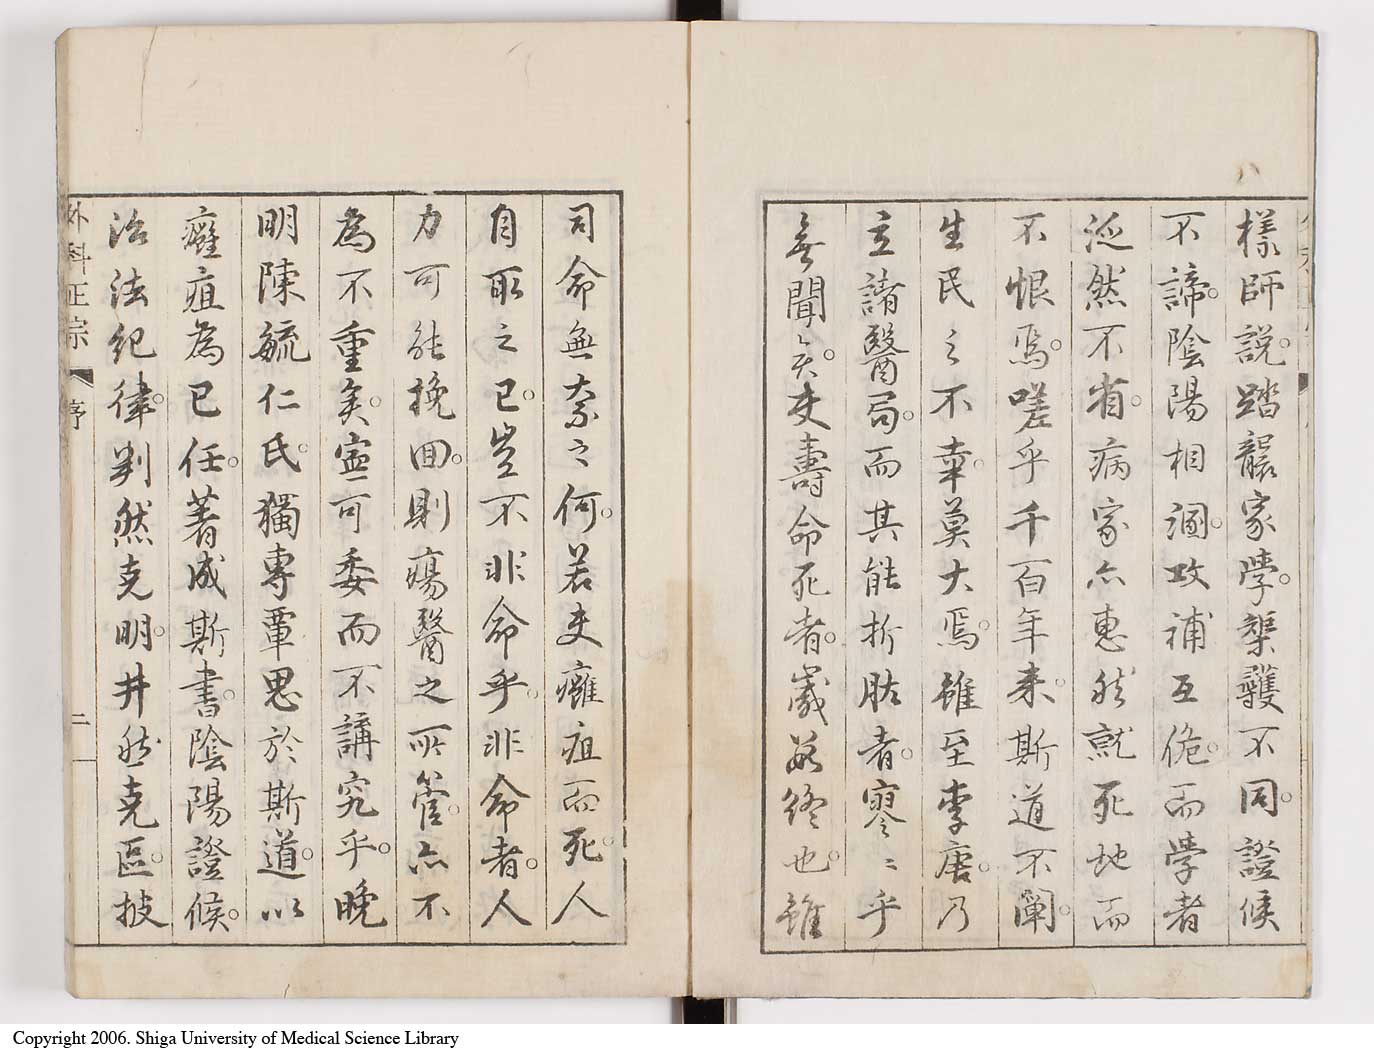 樣師說。踏襲家學。榘矱不同。證候
不諦。陰陽相溷。攻補互佹。而學者
泛然不省。病家亦惠然就死地而
不恨焉。嗟乎千百年来。斯道不闡。
生民之不幸。莫大焉。雖至李唐。乃
立諸醫局。而其能折肱者。寥〻乎
無聞矣。夫壽命死者。歲終也。雖
司命無奈之何。若夫癰疽而死。人
自取之已。豈不非命乎。非命者。人
力可能挽回。則瘍醫之所管。亦不
為不重矣。寧可委而不講究乎。晚
明陳毓仁氏。獨專覃思於斯道。以
癰疽為己任。著成斯書。陰陽證候。
治法紀律。判然克明。井然克區。披
外科正宗 序 二
Copyright 2006. Shiga University of Medical Science Library